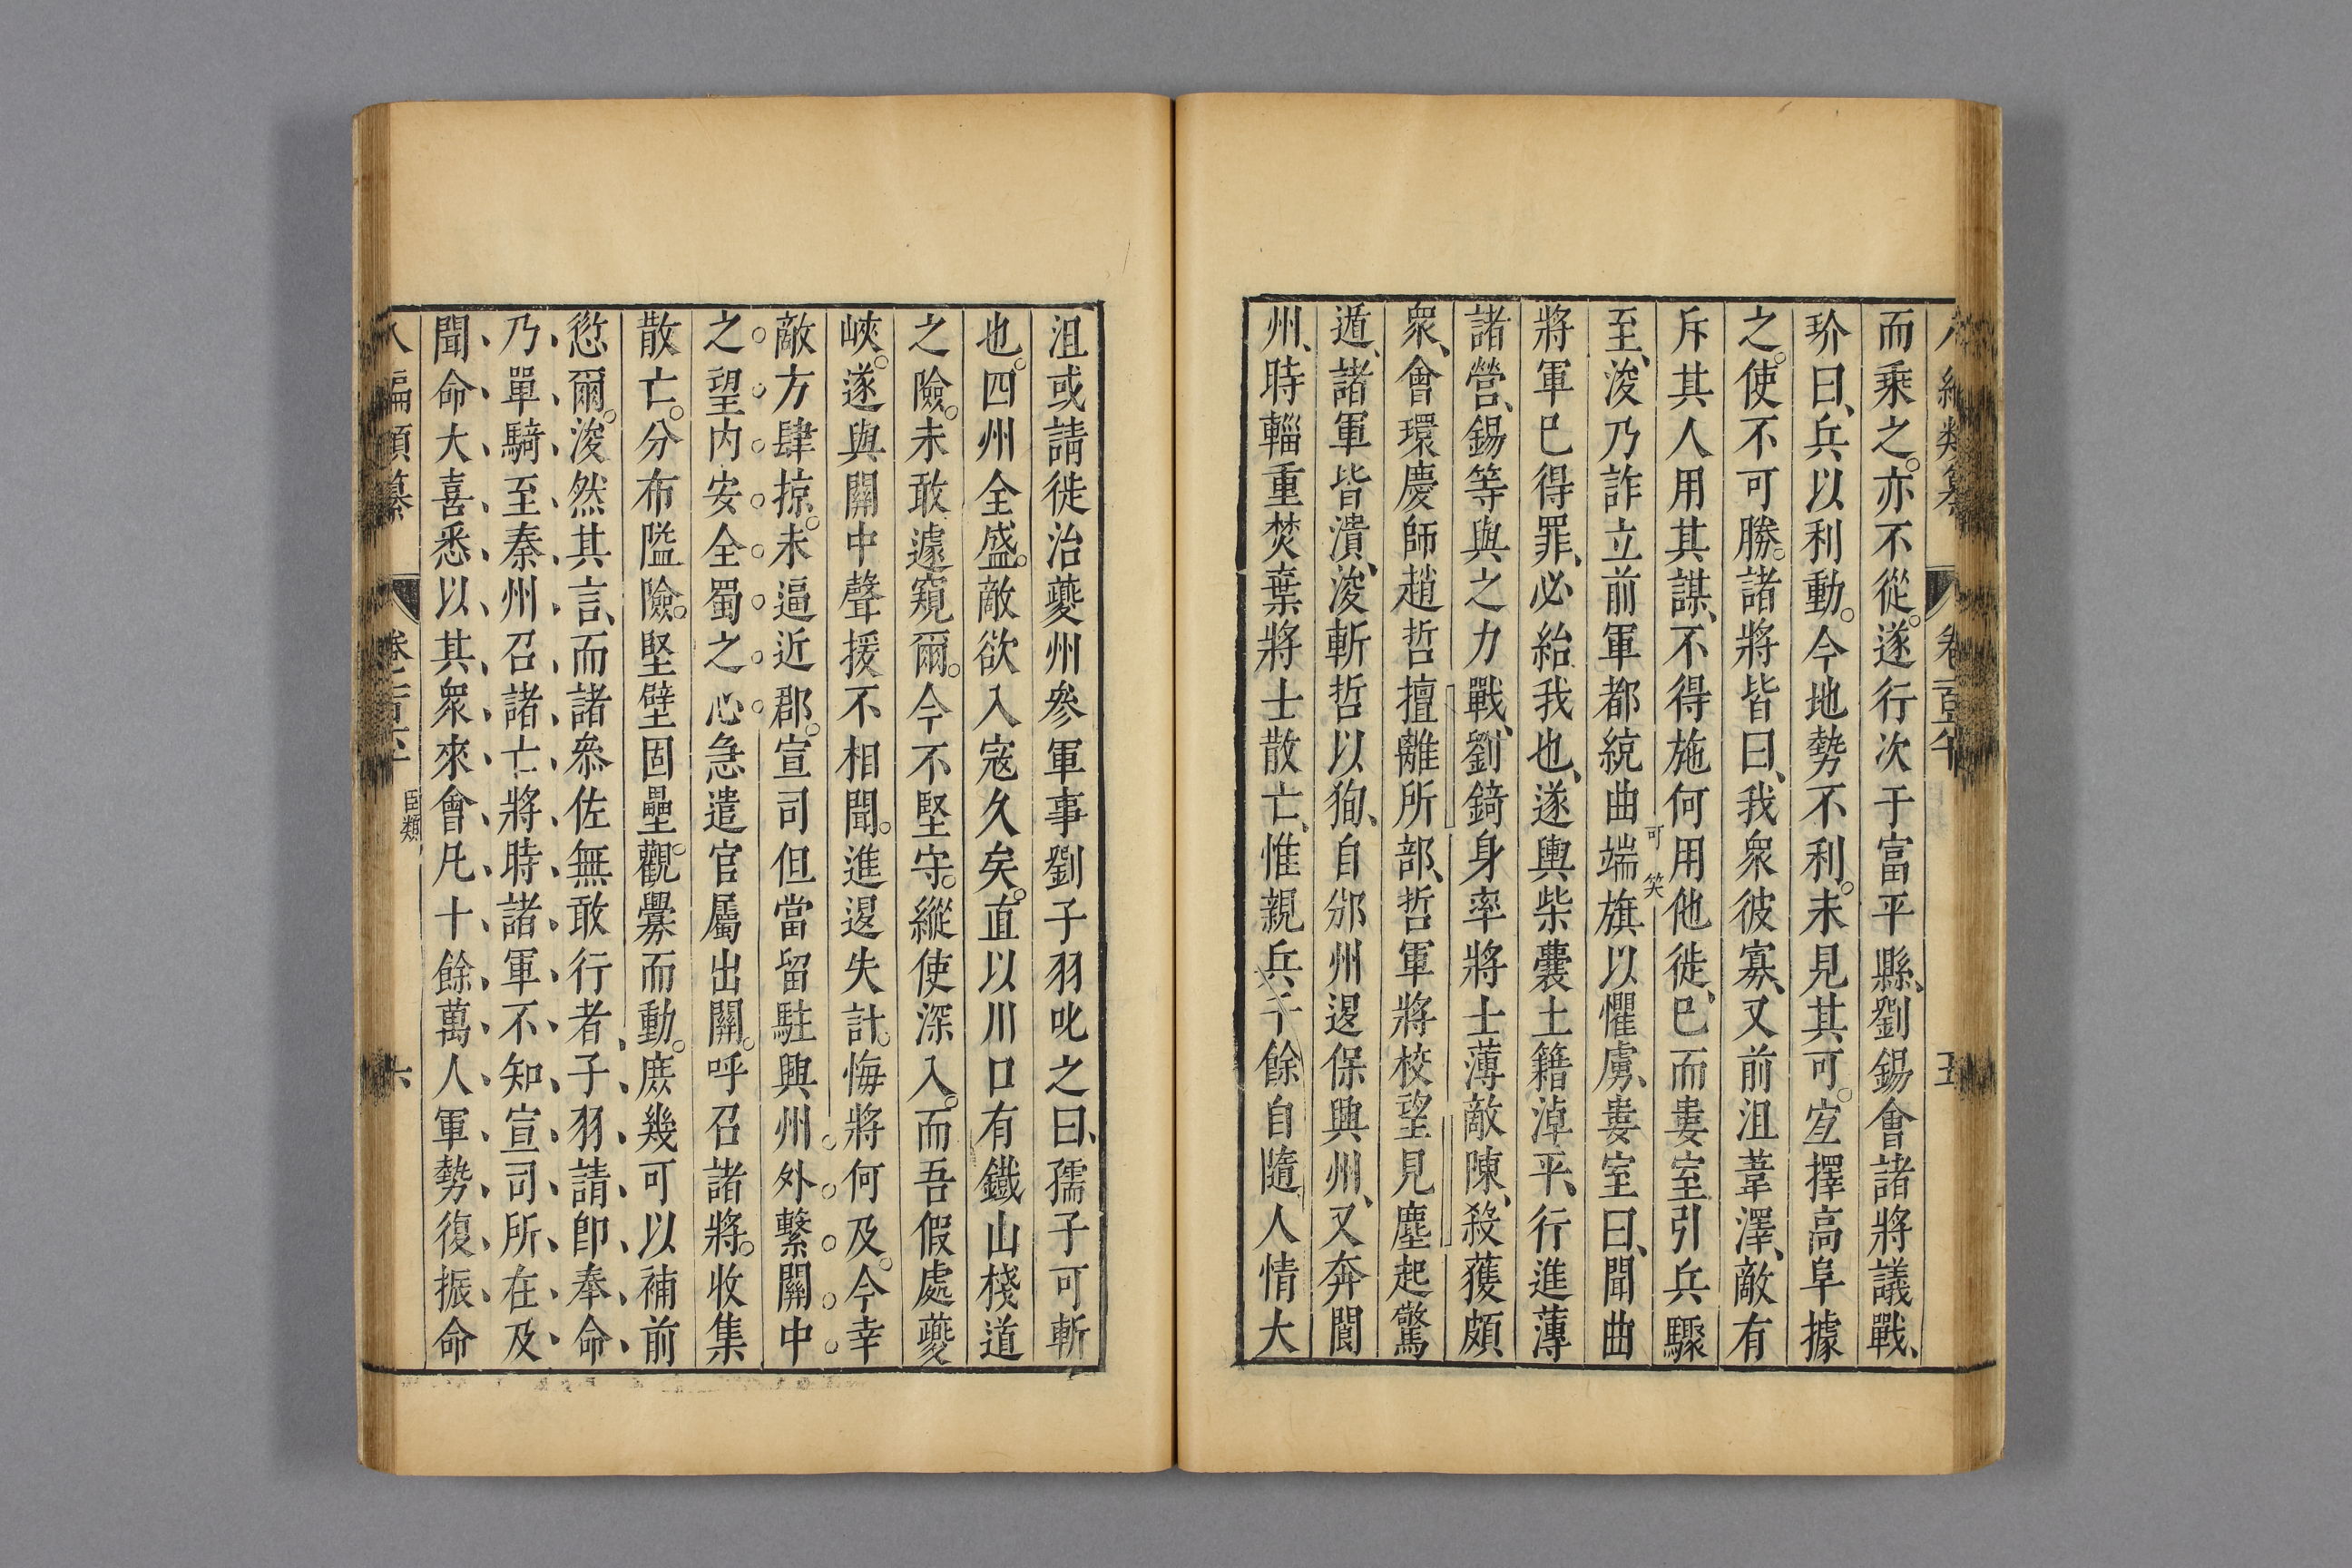 而乘之。亦不從。遂行次于富平縣、劉錫會諸將議戰、
玠曰、兵以利動。今地勢不利。未見其可。宐擇高阜據
之。使不可勝。諸將皆曰、我衆彼寡、又前沮葦澤、敵有
斥其人用其謀、不得施何用他徙、巳而婁室引兵驟
可笑
至、浚乃詐立前軍都統曲端旗以懼虜、婁室曰、聞曲
將軍巳得罪、必紿我也、遂輿柴囊土籍淖平、行進薄
諸營、錫等與之力戰、劉錡身率將士薄敵陳、殺獲頗
衆、會環慶師趙哲擅離所部、哲軍將校望見塵起驚
遁、諸軍皆潰、浚斬哲以狥、自邠州退保興州、又奔閬
州、時輜重焚棄將士散亡、惟親兵千餘自隨、人情大
沮或請徙治夔州參軍事劉子羽叱之曰、孺子可斬
也。四州全盛。敵欲入寇久矣。直以川口有鐵山棧道
之險。未敢遽窺爾。今不堅守。縱使深入。而吾假處夔
峽。遂與關中聲援不相聞。進退失計。悔將何及。今幸
敵方肆掠。未逼近郡。宣司但當留駐興州外繫關中
之望内安全蜀之心急遣官屬出關。呼召諸將。收集
散亡。分布隘險。堅壁固壘。觀釁而動。庶幾可以補前
愆爾。浚然其言、而諸叅佐無敢行者、子羽請卽奉命
乃單騎至秦州召諸亡將時諸軍不知宣司所在及
聞命大喜悉以其衆來會凡十餘萬人軍勢復振命
臣類
六